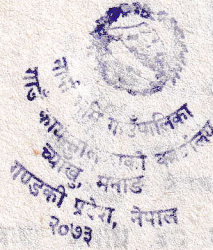 भूमि गाउँपालिका
गाउँ कार्यपालिकाको कार्यालय
च्याखु, मनाङ
गण्डकी प्रदेश, नेपाल
२०७३